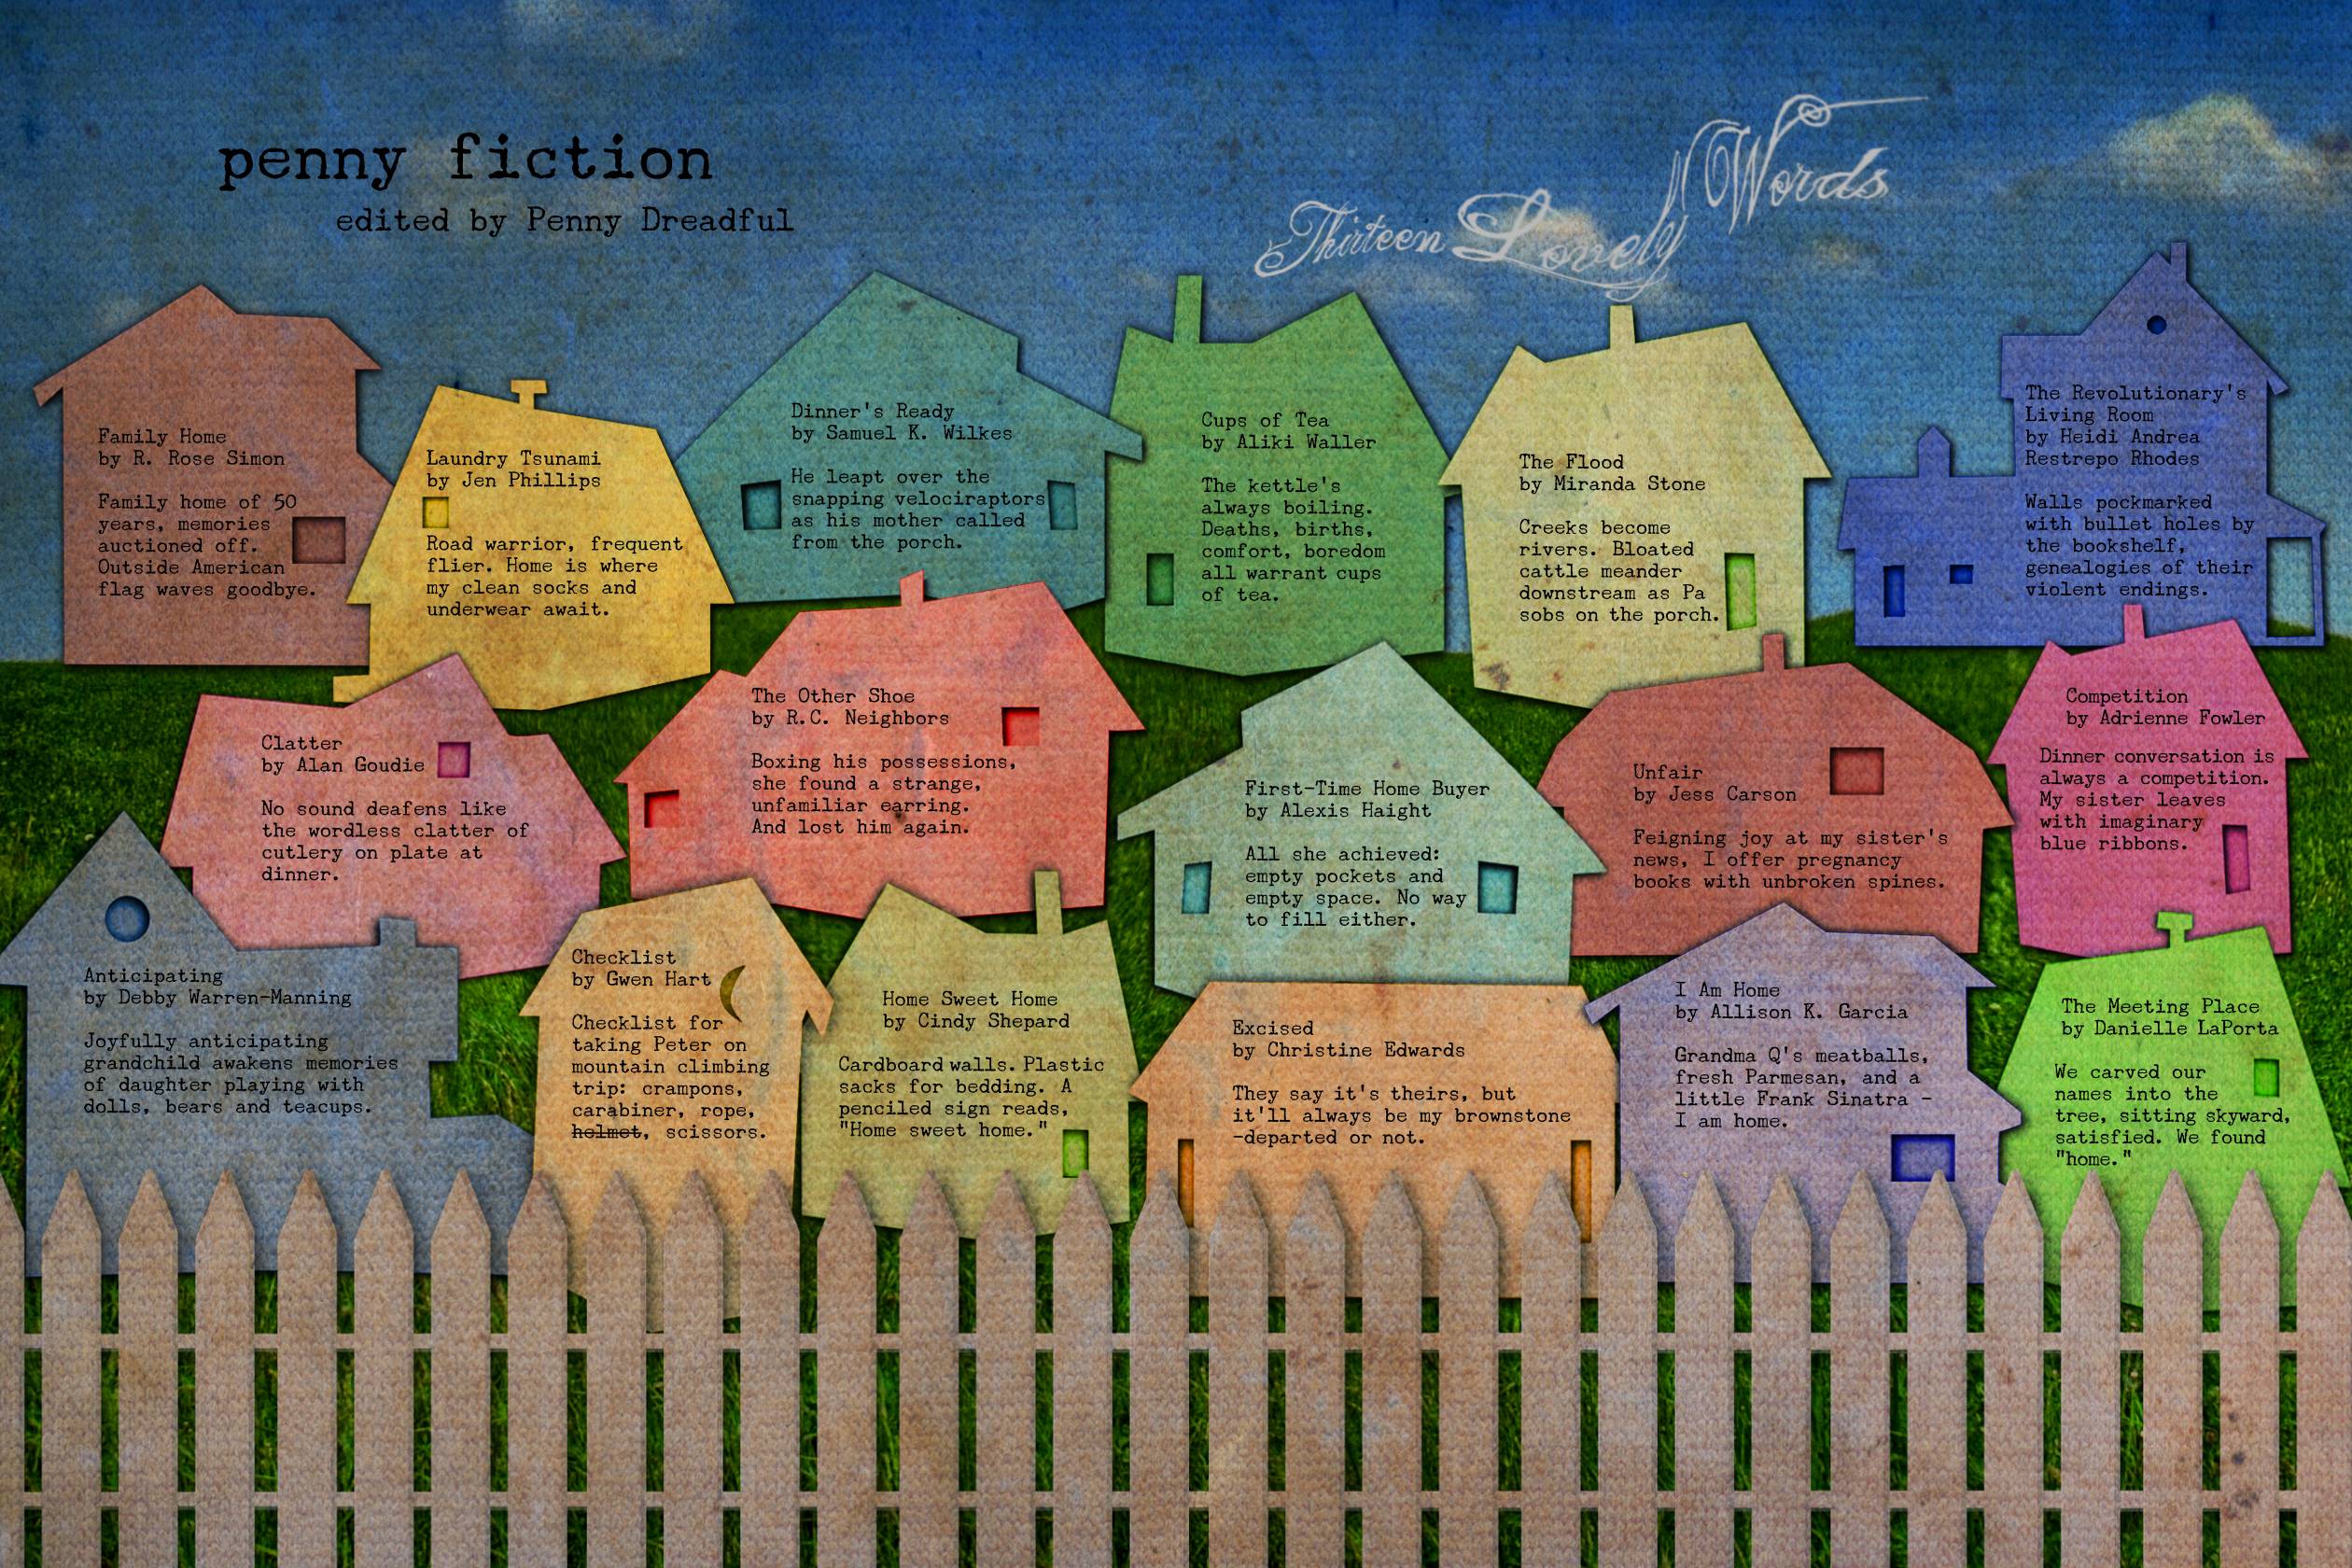 penny fiction
edited by Penny Dreadful
Thirteen Lovely Words
Family Home
by R. Rose Simon
Family home of 50
years, memories
auctioned off.
Outside American
flag waves goodbye.
Laundry Tsunami
by Jen Phillips
Road warrior, frequent
flier. Home is where
my clean socks and
underwear await.
Dinner's Ready
by Samuel K. Wilkes
He leapt over the
snapping velociraptors
as his mother called
from the porch.
Cups of Tea
by Aliki Waller
The kettle's
always boiling.
Deaths, births,
comfort, boredom
all warrant cups
of tea.
The Flood
by Miranda Stone
Creeks become
rivers. Bloated
cattle meander
downstream as Pa
sobs on the porch.
The Revolutionary's
Living Room
by Heidi Andrea
Restrepo Rhodes
Walls pockmarked
with bullet holes by
the bookshelf,
genealogies of their
violent endings.
Clatter
by Alan Goudie
No sound deafens like
the wordless clatter of
cutlery on plate at
dinner.
The Other Shoe
by R.C. Neighbors
Boxing his possessions,
she found a strange,
unfamiliar earring.
And lost him again.
First-Time Home Buyer
by Alexis Haight
All she achieved:
empty pockets and
empty space. No way
to fill either.
Unfair
by Jess Carson
Feigning joy at my sister's
news, I offer pregnancy
books with unbroken spines.
Competition
by Adrienne Fowler
Dinner conversation is
always a competition.
My sister leaves
with imaginary
blue ribbons.
Anticipating
by Debby Warren-Manning
Joyfully anticipating
grandchild awakens memories
of daughter playing with
dolls, bears and teacups.
Checklist
by Gwen Hart
Checklist for
taking Peter on
mountain climbing
trip: crampons,
carabiner, rope,
helmet, scissors.
Home Sweet Home
by Cindy Shepard
Cardboard walls. Plastic
sacks for bedding. A
penciled sign reads,
"Home sweet home."
Excised
by Christine Edwards
They say it's theirs, but
it'll always be my brownstone
-departed or not.
I Am Home
by Allison K. Garcia
Grandma Q's meatballs,
fresh Parmesan, and a
little Frank Sinatra -
I am home.
The Meeting Place
by Danielle LaPorta
We carved our
names into the
tree, sitting skyward,
satisfied. We found
"home."